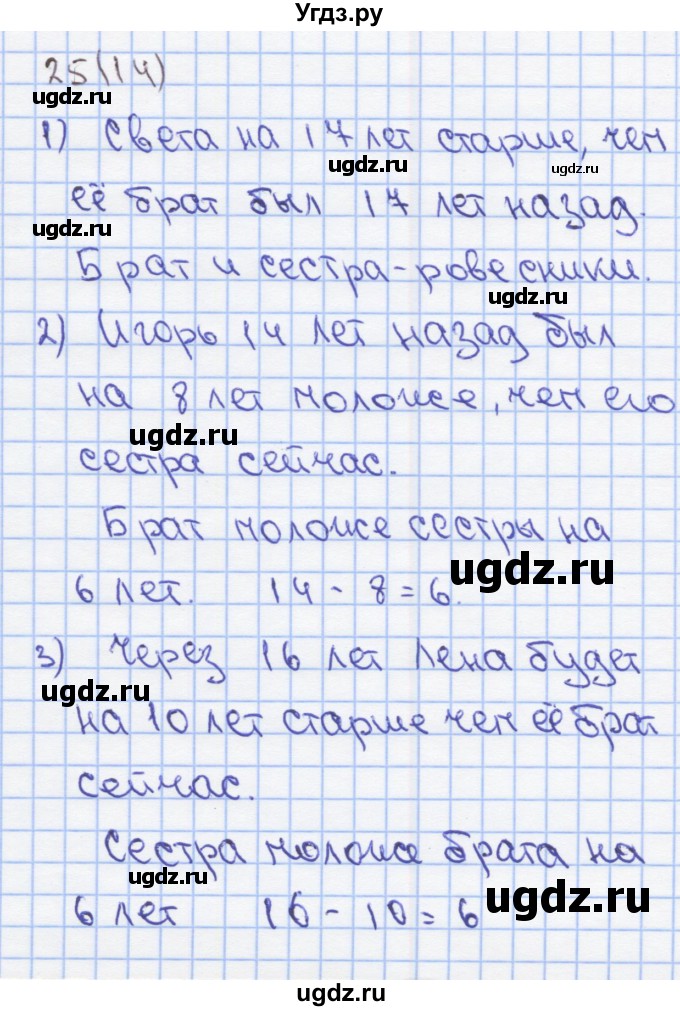 Угдз.ру
25(14)
ugdz.ru
1) Света на 17 лет старше, чем
ugdz.ru ugdz.ru
её брат был 17 лет назад.
ugdz.ru
Брат и сестра-ровесники.
ugdz.ru
2) Игорь 14 лет назад был
на 8 лет моложе, чем его
ugdz.ru
сестра сейчас.
Брат моложе сестры на
ugdz.ru
6 лет. 14 - 8 = 6.
3) Через 16 лет Лена будет
ugdz.ru
на 10 лет старше чем её брат
сейчас.
Сестра моложе брата на
ugdz.ru ugdz.ru
6 лет 16 - 10 = 6
ugdz.ru